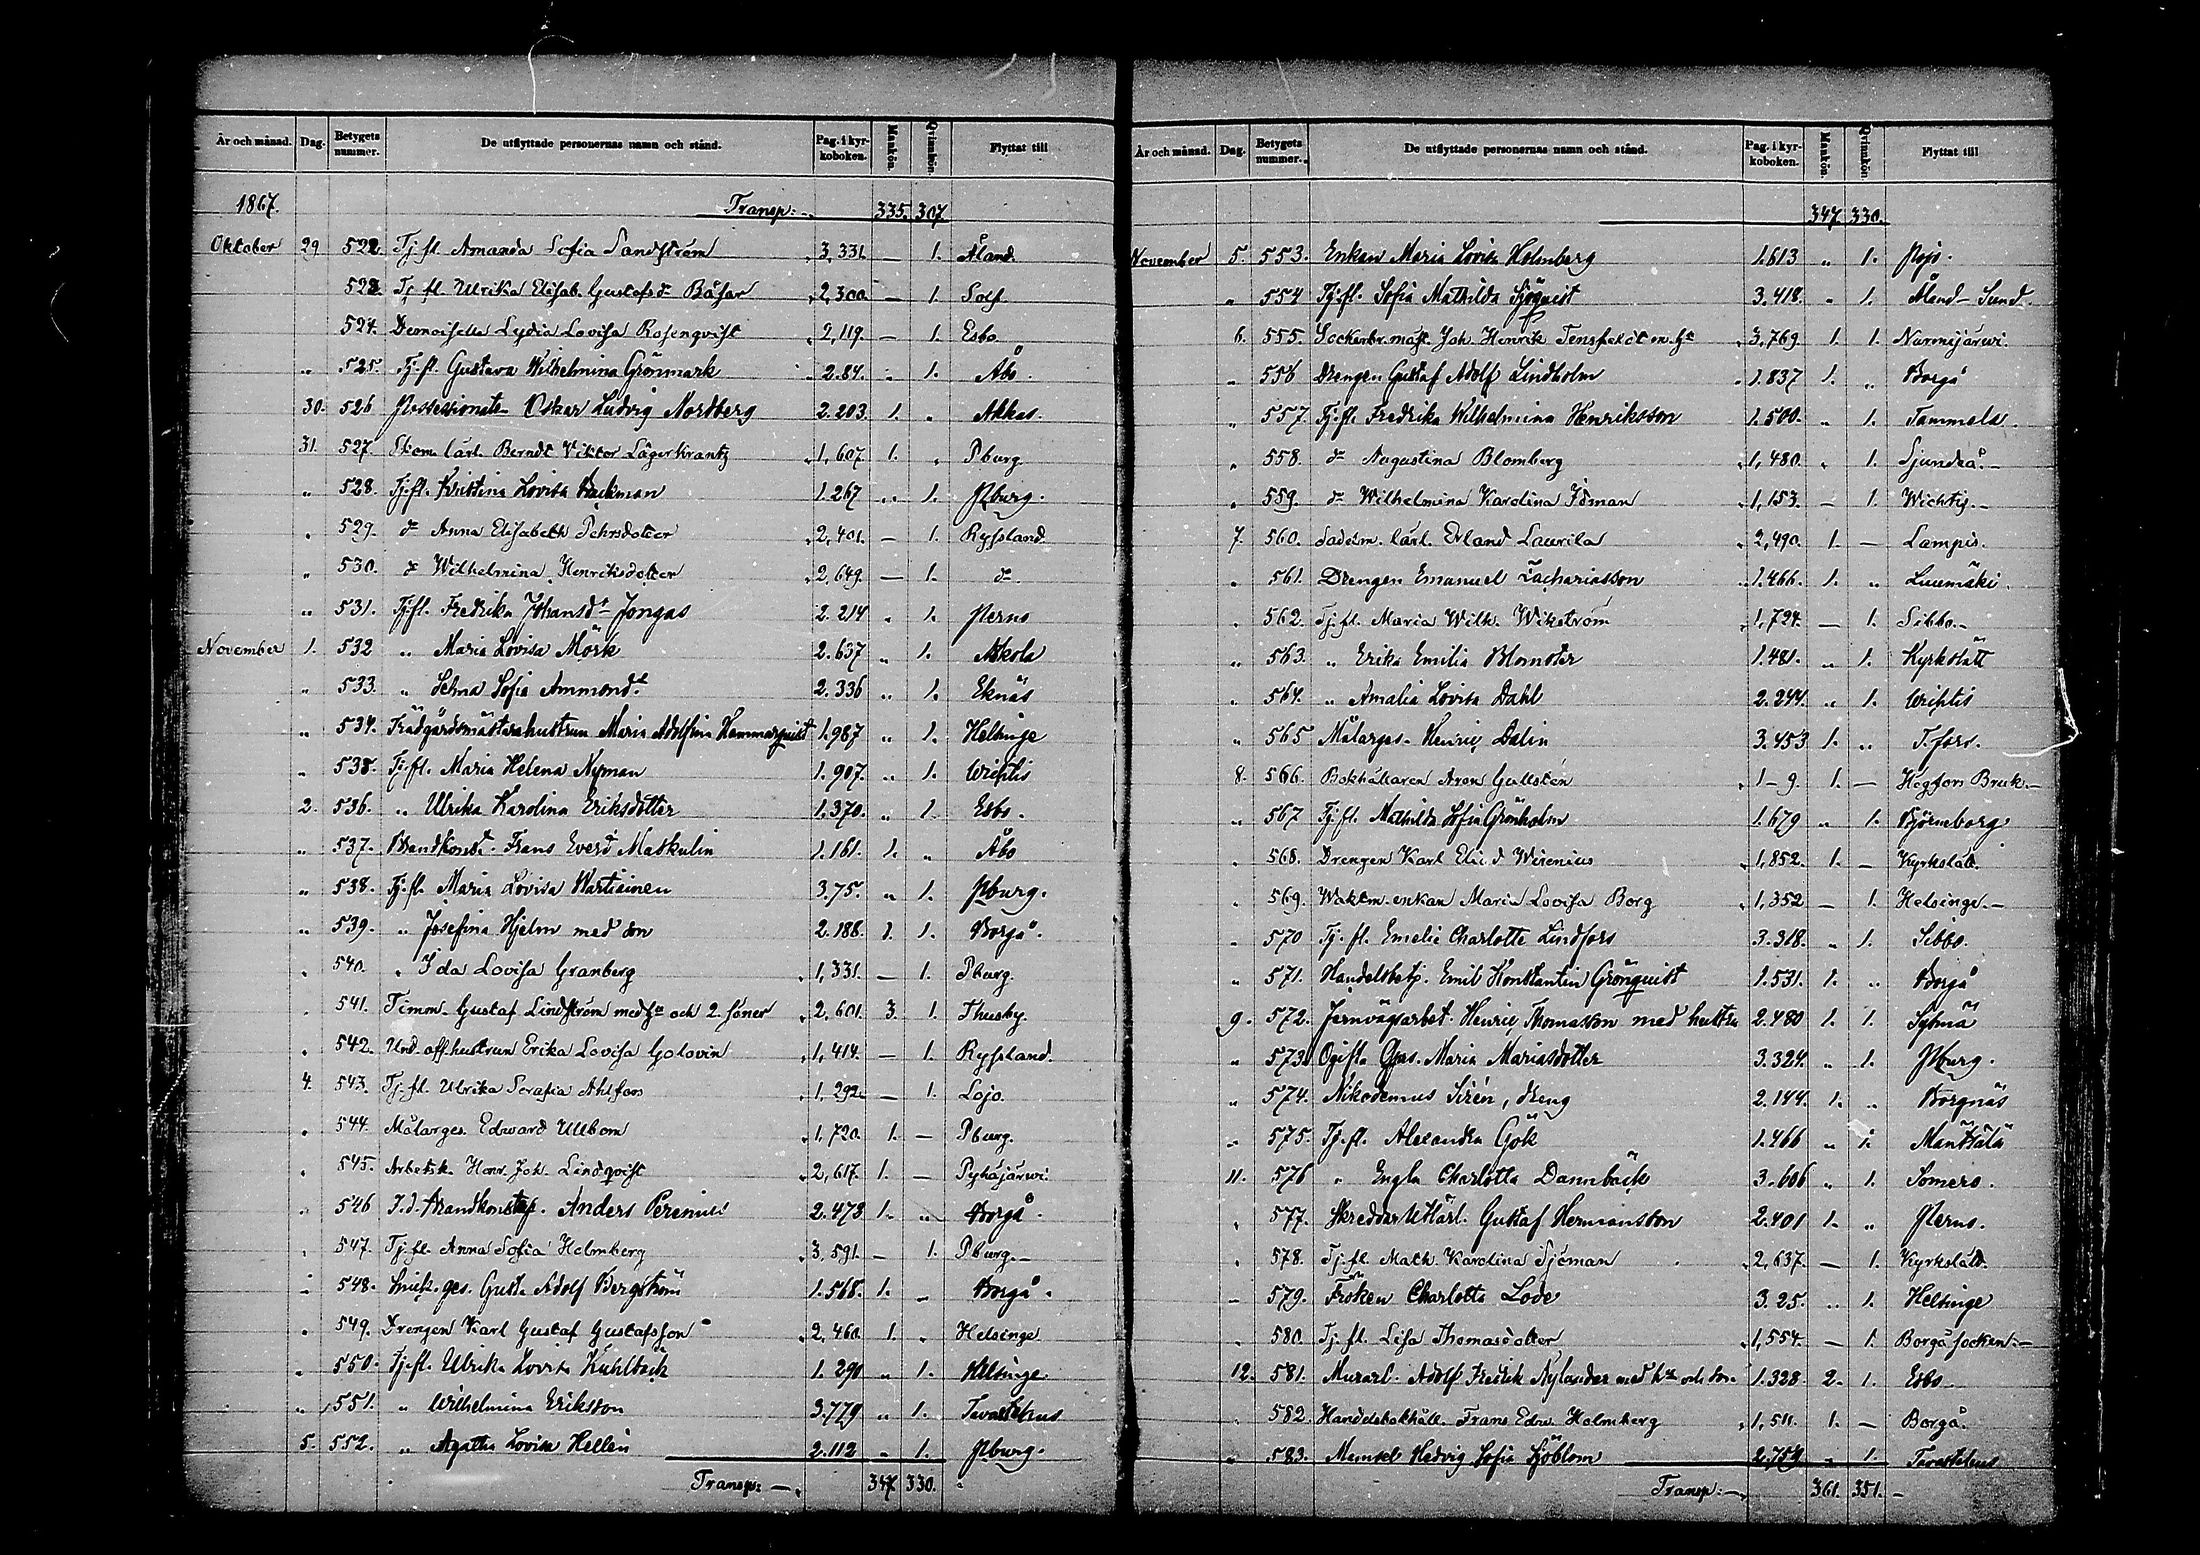 År och månad. Dag. Betygets nummer. De utflyttade personernas namn och stånd. Pag. i kyrkoboken. Mankön. Qvinnkön. Flyttat till
1867. Transp: 335. 307.
Oktober 29 522. Tj. fl. Amanda Sofia Sandström 3,331. — 1. Åland.
523. Tj. fl. Ulrika Elisab. Gustafsdr 2,300 — 1. Solf
524. Demoiselle Lydia Lovisa Rosenqvist 2,119. — 1. Esbo
„ 525. Tj. fl. Gustava Wilhelmina Grönmark 2.84. „ 1. Åbo
30. 526 Possessionaten Oskar Ludvig Nordberg 2.203. 1. „ Akkas.
31. 527. lärl. Berndt Viktor Lägerkrantz 1,607 1. „ Pburg.
„ 528. Tj. fl. Kristina Lovisa Backman 1.267 „ 1. Pburg.
„ 529. do Anna Elisabeth Pehrsdotter 2,401. — 1. Ryssland
„ 530. do Wilhelmina Henriksdotter 2,649. — 1. do
„ 531. Tj. fl. Fredrika Johansdr Jongas 2.214 „ 1. Perno
November 1. 532 „ Maria Lovisa Mörk 2.637 „ 1. Askola
„ 533. „ Selma Sofia 2.336 „ 1. Eknäs
„ 534. Trädgårdsmästarehustrun Maria Adolfina Hammarquist 1.987 „ 1. Helsinge
„ 535. Tj. fl. Maria Helena Nyman 1.907. „ 1. Wichtis
2. 536. „ Ulrika Karolina Eriksdotter 1.370. „ 1. Esbo.
„ 537. Brandkonst. Frans Everd Maskulin 1.161. 1. „ Åbo
„ 538. Tj. fl. Maria Lovisa Wartiainen 3.75. „ 1. Pburg.
„ 539. „ Josefina Hjelm med son 2.188. 1. 1. Borgå.
„ 540. „ Ida Lovisa Granberg 1,331. — 1. Pburg.
„ 541. Timm. Gustaf Lindström med hu och 2. söner 2,601. 3. 1. Thusby.
„ 542. Und. off. hustrun Erika Lovisa Golovin 1,414. — 1. Ryssland.
4. 543. Tj. fl. Ulrika Serafia Ahlfors 1,292. — 1. Lojo.
„ 544. Målarges. Edward Ullbom 1,720. 1. — Pburg.
„ 545. Arbetsk. Henr. Joh. Lindqvist 2,617. 1. — Pyhäjärwi.
„ 546 Anders Perenius 2.478 1. „ Borgå.
„ 547. Tj. fl. Anna Sofia Holmberg 3,591. — 1. Pburg.
„ 548. Smidsges. Gust. Adolf Bergström 1.568. 1. „ Borgå.
„ 549. Drengen Karl Gustaf Gustafsson 2,460. 1. „ Helsinge
„ 550. Tj. fl. Ulrika Lovisa Kuhlbäck 1.290 „ 1. Helsinge
„ 551. „ Wilhelmina Eriksson 3.779 „ 1. Tavastehus
5. 552. „ Agatha Lovisa Hellén 2.112 „ 1. Pburg.
Transp: 347. 330.
År och månad. Dag. Betygets nummer. De utflyttade personernas namn och stånd. Pag. i kyrkoboken. Mankön. Qvinnkön. Flyttat till
347. 330.
November 5. 553. Enkan Maria Lovisa Holmberg 1.613 „ 1. Pojo.
„ 554 Tj. fl. Sofia Mathilda Sjöquist 3.418. „ 1. Åland - Sund.
6. 555. Sockerbr. mäst. Joh. Henrik m. hu 3,769. 1. 1. Nurmijärwi.
„ 556 Drengen Gustaf Adolf Lindholm 1.837 1. „ Borgå
„ 557. Tj. fl. Fredrika Wilhelmina Henriksson 1.500. „ 1. Tammela.
„ 558. do Augustina Blomberg 1,480. „ 1. Sjundeå.
„ 559. do Wilhelmina Karolina Idman 1,153. — 1. Wichtis.
7. 560. Sadelm. lärl. Erland Laurila 2,490. 1. — Lampis.
„ 561. Drengen Emanuel Zachariasson 1.466. 1. „ Luumäki.
562. Tj. fl. Maria Wilh. Wikström 1,724. — 1. Sibbo.
„ 563. „ Erika Emilia Blomster 1.481. „ 1. Kyrkslätt
„ 564. „ Amalia Lovisa Dahl 2.244. „ 1. Wichtis
„ 565 Målarges. Henric Dalin 3.453 1. „ T. fors.
8. 566. Bokhållaren Aron Gullstén 1-9. 1. — Högfors Bruk.
„ 567 Tj. fl. Mathilda Sofia Grönholm 1.679 „ 1. Björneborg
„ 568. Drengen Karl Elis Wirenius 1,852. 1. — Kyrkslätt.
„ 569. Waktm. enkan Maria Lovisa Borg 1,352 — 1. Helsinge.
„ 570 Tj. fl. Emelie Charlotte Lindfors 3.318. „ 1. Sibbo.
„ 571. Handelsbetj. Emil Konstantin Grönquist 1.531. 1. „ Borgå
9. 572. Jernvägsarbet. Henric Thomasson med hustru 2.480 1. 1. Sysmä
„ 573. Ogifta Maria Mariasdotter 3.324. „ 1. Pburg.
„ 574. Nikodemus Sirén, dreng 2.144. 1. „ Borgnäs
„ 575. Tj. fl. Alexandra Gök 1.466 „ 1. Mäntsälä
11. 576 „ Engla Charlotta Dannbäck 3.606 „ 1. Somero.
„ 577. Skreddar lärl. Gustaf Hermansson 2.401 1. „ Perno.
„ 578. Tj. fl. Math. Karolina Sjöman 2,637. — 1. Kyrkslätt.
„ 579. Fröken Charlotta Lode 3.25. „ 1. Helsinge
„ 580. Tj. fl. Lisa Thomasdotter 1,554. — 1. Borgå socken.
12. 581. Murarl. Adolf Fredrik Nylander med hu och son 1.328 2. 1. Esbo
„ 582. Handelsbokhåll. Frans Edw. Holmberg 1,511. 1. — Borgå.
„ 583. Mamsel Hedvig Sofia Sjöblom 2.759 „ 1. Tavastehus
Transp: 361. 351.